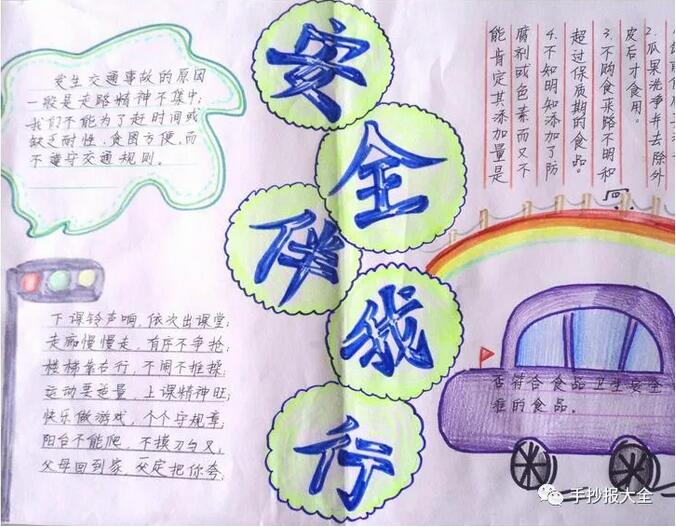 发生交通事故的原因
一般是走路精神不集中;
我们不能为了赶时间或
缺乏耐性、贪图方便,而
不遵守交通规则。
安
全
伴
我
行
下课铃声响,依次出课堂;
走廊慢慢走,有序不争抢;
楼梯靠右行,不闹不推搡;
运动要适量,上课精神旺;
快乐做游戏,个个守规章;
阳台不能爬,不摸刀与叉,
父母回到家,定把你夸。
2.瓜果洗净并去除外
皮后才食用。
3.不购食来路不明和
超过保质期的食品。
4.不知明知添加了防
腐剂或色素而又不
能肯定其添加量是
否符合食品卫生安全
的食品。
手抄报大全